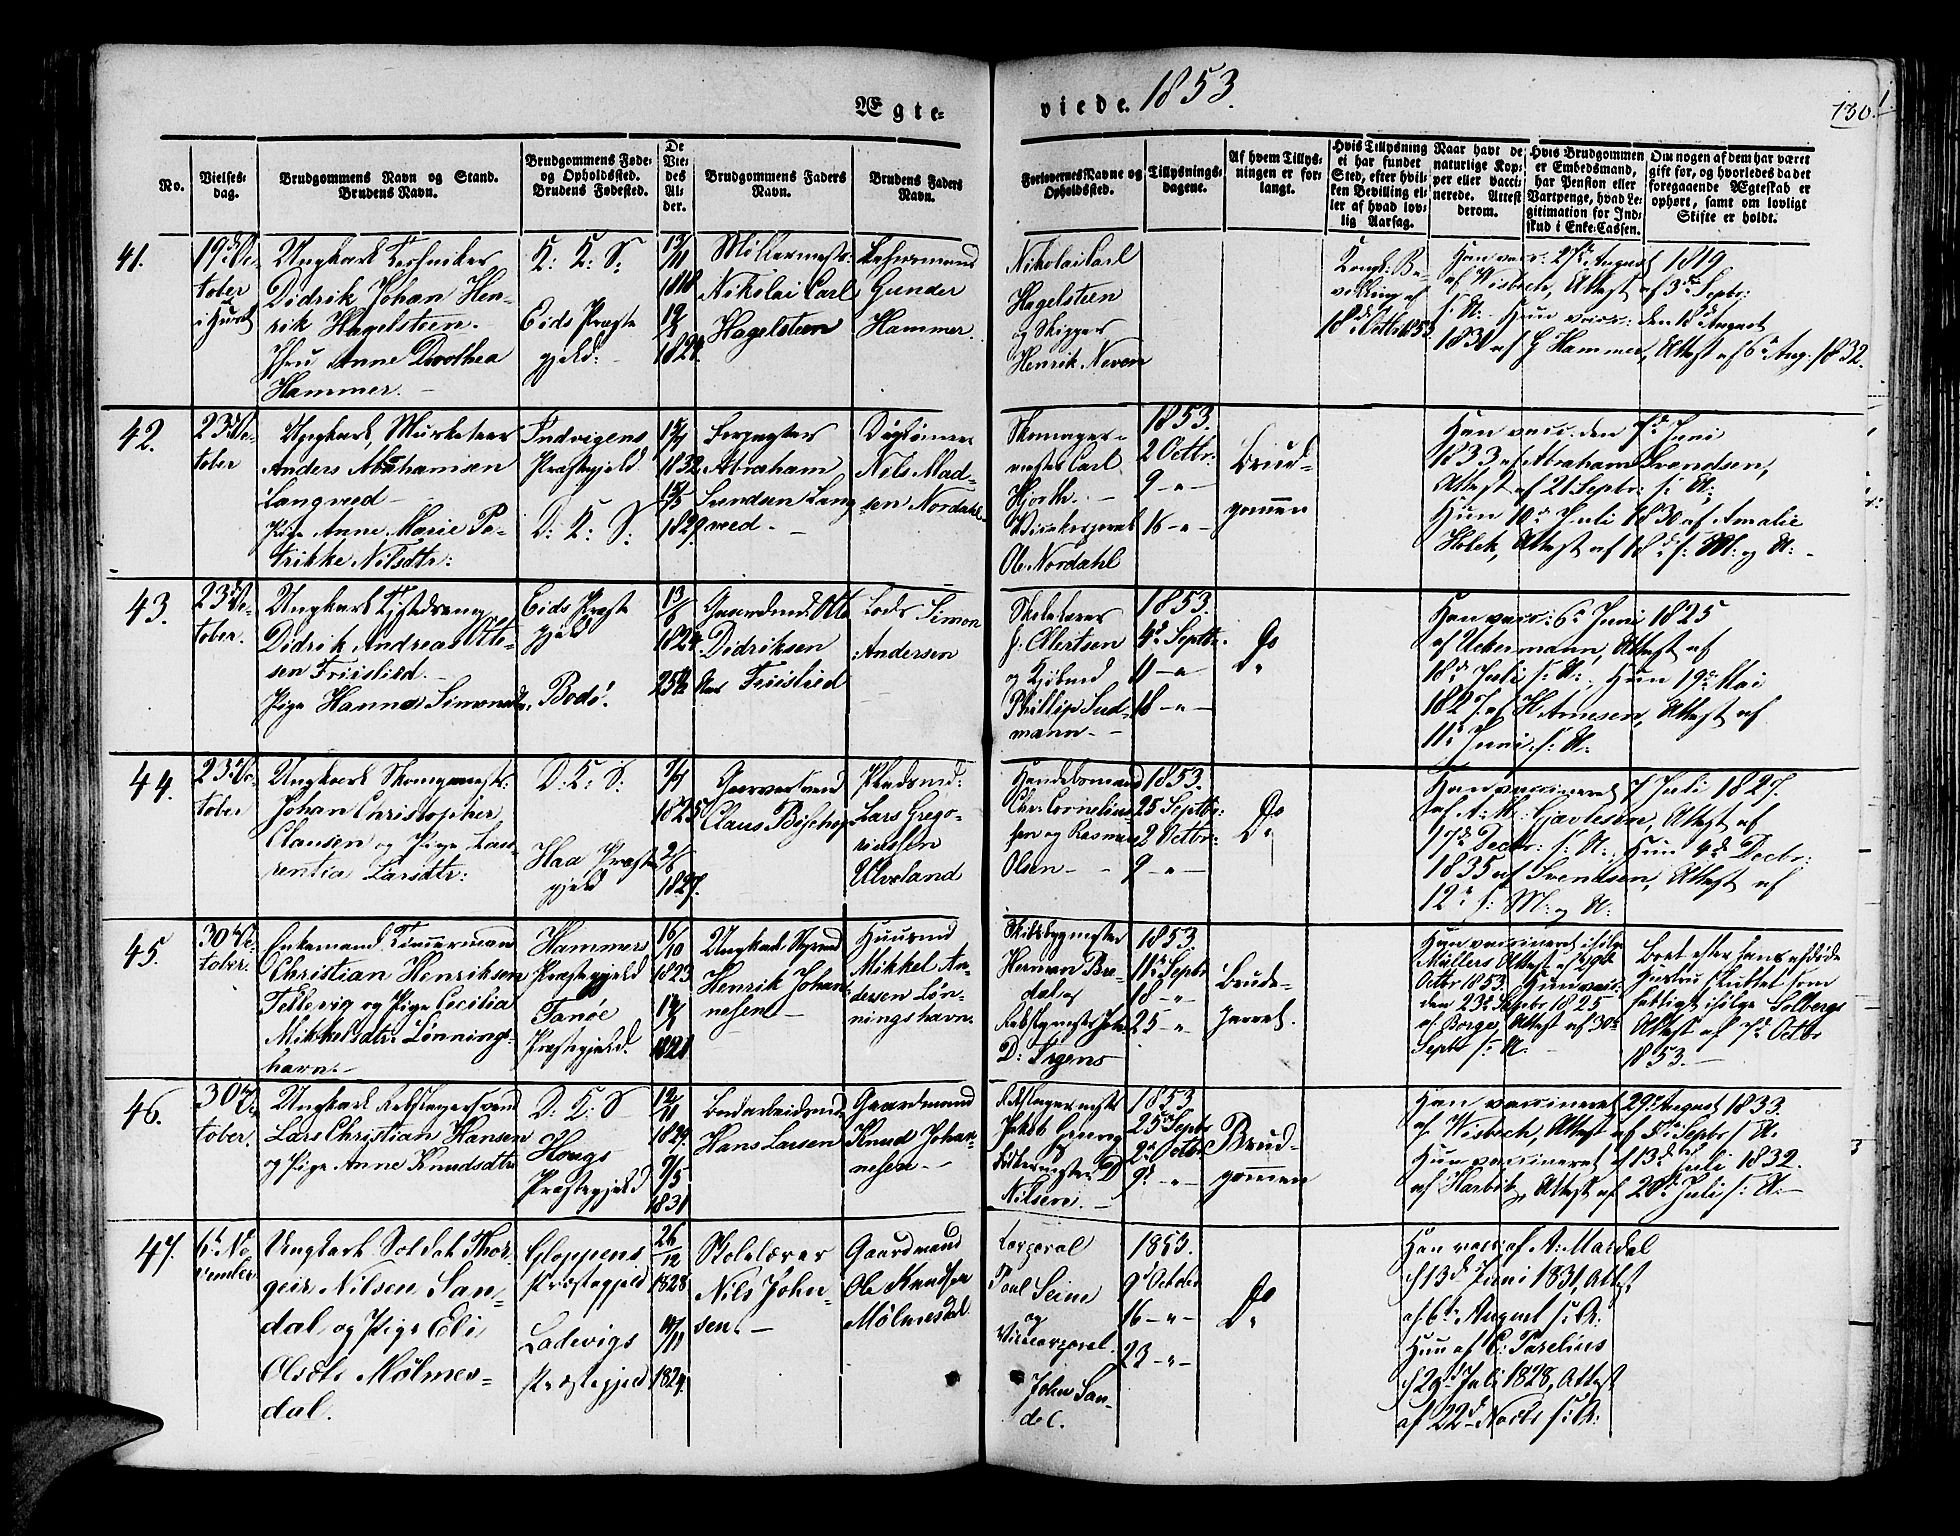 Ægte-
viede. 1853.
130.
No.
Vielses-
dag.
Brudgommens Navn og Stand.
Brudens Navn.
Brudgommens Føde-
og Opholdssted.
Brudens Fødested.
De
Vie-
des
Al-
der.
Brudgommens Faders
Navn.
Brudens Faders
Navn.
Forlovernes Navne og
Opholdssted.
Tillysnings-
dagene.
Af hvem Tillys-
ningen er for-
langt.
Hvis Tillysning
ei har fundet
Sted, efter hvil-
ken Bevilling el-
ler af hvad lov-
lig Aarsag.
Naar havt de
naturlige Kop-
per eller vacci-
nerede. Attest
derom.
Hvis Brudgommen
er Embedsmand,
har Pension eller
Vartpenge, hvad Le-
gitimation for Ind-
skud i Enke-Cassen.
Om nogen af dem har været
gift før, og hvorledes da det
foregaaende Ægteskab er
ophørt, samt om lovligt
Skifte er holdt.
41.
19d Oc-
tober
i Huset
Ungkarl
Didrik Johan Hen-
rik Hagelsteen.
Jfru Anne Dorothea
Hammer.
D: K: S:
Eids Præste
gjeld:
1818
19
1824
Møllermester
Nikolai Carl
Hagelsteen
Gunder
Hammer.
Nikolai Carl
Hagelsteen
og Skipper
Henrik Neven
Kongl: Be-
villing af
18d Octbr 1853
Han vacc. 27de August 1819
af Wisbech, Attest af 3de Septbr:
s: A: Hun vacc: den 18d August
1831 af G Hammer, Attest af 6d Aug. 1832.
42.
23d Oc-
tober
Ungkarl, Musketeer
Anders Abrahamsen
Langved
Pige Anne Marie Pe-
trikke Nilsdtr:
Indvigens
Præstegjeld
D: K: S:
1832
1829
Forpagter
Abraham
Svendsen Lang
wed
Nils Mad-
sen Nordahl
Skomager-
mester Carl
Hjorth.
Ole Nordahl
1853.
2 Octbr:
9 - " -
16 - " -
Brud-
gomen
Han vacc. den 7d Juni
1833 af Abraham Svendsen,
Attest af 21 Septbr: s: A:
Hun 10d Juli 1830 af Amalie
Holck, Attest af 18d s: M: og A:
43.
23d Oc-
tober.
Ungkarl
Didrik Andreas Otte-
sen Friislied.
Pige Hanna Simonsdtr.
Eids Præste
gjeld
Bodø.
13
1824
25 1/2 Aar
Gaardmd: Otte
Didriksen
Friislied
Lods Simon
Andersen
Skolelærer
J: Ellertsen
og Kjøbmd
Phillip Sud-
mann
1853.
4d Septbr.
11 - "
18 - " -
Do
Han vacc: 6d Juni 1825
af Uckermann, Attest af
18d Juli s: A:, Hun 19d Mai
1827 af H Arnesen, Attest af
11d Juni s: A:
44.
23d Oc-
tober
Ungkarl Skomagermstr:
Johan Christopher
Clausen og Pige Lau-
rentia Larsdtr:
D: K: S:
Haa Præste
gjeld
1825
1827.
Garversvend
Claus Bischop
Pladsmd:
Lars Grego-
riussen
Ulveland
Handelsmand
Chr: Cornelius-
sen og Rasmus
Olsen
1853.
25 Septbr:
2 Octbr:
9 - " -
Do
Han vaccineret 7 Juli 1827.
af A: K: Gjertsen, Attest af
17d Decbr: s: A:, Hun 4d Decbr:
1835 af Svendsen, Attest af
12d s: M: og A:
45.
30d Oc-
tober.
Enkemand Tømermand
Christian Henriksen
Tellevig og Pige Cecilia
Mikkelsdtr Lønnings-
havn.
Hammers
Præstegjeld
Fanøe
Præstegjeld.
16
10
1823
1821
Ungkarl
Henrik Johan-
nesen
Huusmd
Mikkel An-
dersen Løn-
ningshavn
Skibsbygmester
Herman Bre-
dal og
D: Irgens
1853.
11d Septbr
18 - "
25 - "
Brude-
parret.
Han vaccineret ifølge
Müllers Attest af
Octbr 1853. Hun vacc:
den 23d Septbr 1825
af Borge, Attest af 30d
Septbr s: A:
Boet efter hans afdøde
Hustru sluttet som
fallit ifølge Solbergs
Attest af 7d Octbr
1853.
46.
30d Oc-
tober.
Ungkarl Rebslagersvend
Lars Christian Hansen
og Pige Anne Knudsdtr
D: K: S
Hougs
Præstegjeld
12
11
1829.
9/5
1831
Bodarbeidsmd
Hans Larsen
Gaardmand
Knud Johan-
nesen
Rebslagermester
Jakob
Nilsen.
1853
25d Septbr
2d Octbr
9d - "
Brud-
gomen
Han vaccineret 29d August 1833.
af Wisbech, Attest af 5d Septbr s: A.
Hun vaccineret af 13d Juli 1832.
af Harbitz, Attest af 20d Juli s: A:
47.
6d No-
vember
Ungkarl Soldat Thor-
geir Nilsen San-
dal, og Pige Eli
Olsdtr Mølmes-
dal.
Gloppens
Præstegjeld
Ladevigs
Præstegjeld
26
12
1828
1829.
Skolelærer
Nils John-
sen.
Gaardmand
Ole Knudsen
Mølmesdal
Corporal
Poul Seim
og
Vicecorporal
John San-
dal.
1853.
9d October
16 - " -
23 - " -
Do
Han vacc: af A: Mardal
d 13d Juni 1831, Attest
af 6d August s: A:
Hun af C: Parelius
d 29d Juli 1828, Attest
af 22d Novbr s: A: